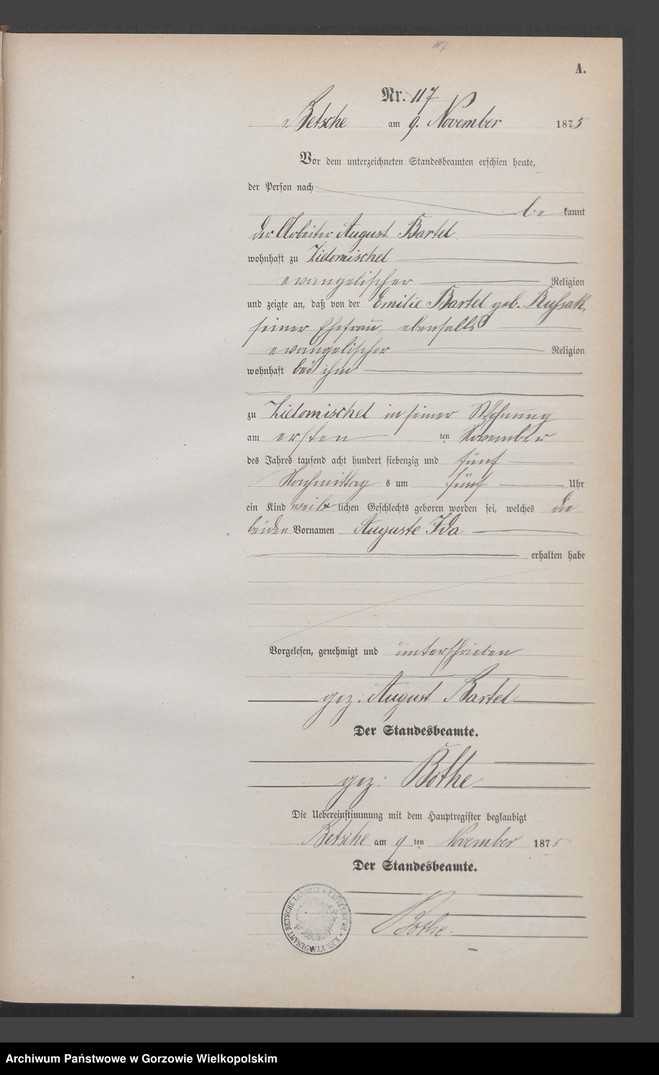 A.
Nr. 117
Betsche am 9. November 1875
Vor dem unterzeichneten Standesbeamten erschien heute,
der Person nach
be kannt
der Arbeiter August Bartel
wohnhaft zu Zielomischel
evangelischer Religion
und zeigte an, daß von der Emilie Bartel geb.
seiner Ehefrau, ebenfalls
evangelischer Religion
wohnhaft bei ihm
zu Zielomischel in seiner Wohnung
am ersten ten November
des Jahres tausend acht hundert siebenzig und fünf
Nachmittag s um fünf Uhr
ein Kind weib lichen Geschlechts geboren worden sei, welches die
beiden Vornamen Auguste Ida
erhalten habe
Vorgelesen, genehmigt und unterschrieben
gez: August Bartel
Der Standesbeamte.
gez: Bothe
Die Uebereinstimmung mit dem Hauptregister beglaubigt
Betsche am 9 ten November 1875
Der Standesbeamte.
Bothe.
Archiwum Państwowe w Gorzowie Wielkopolskim